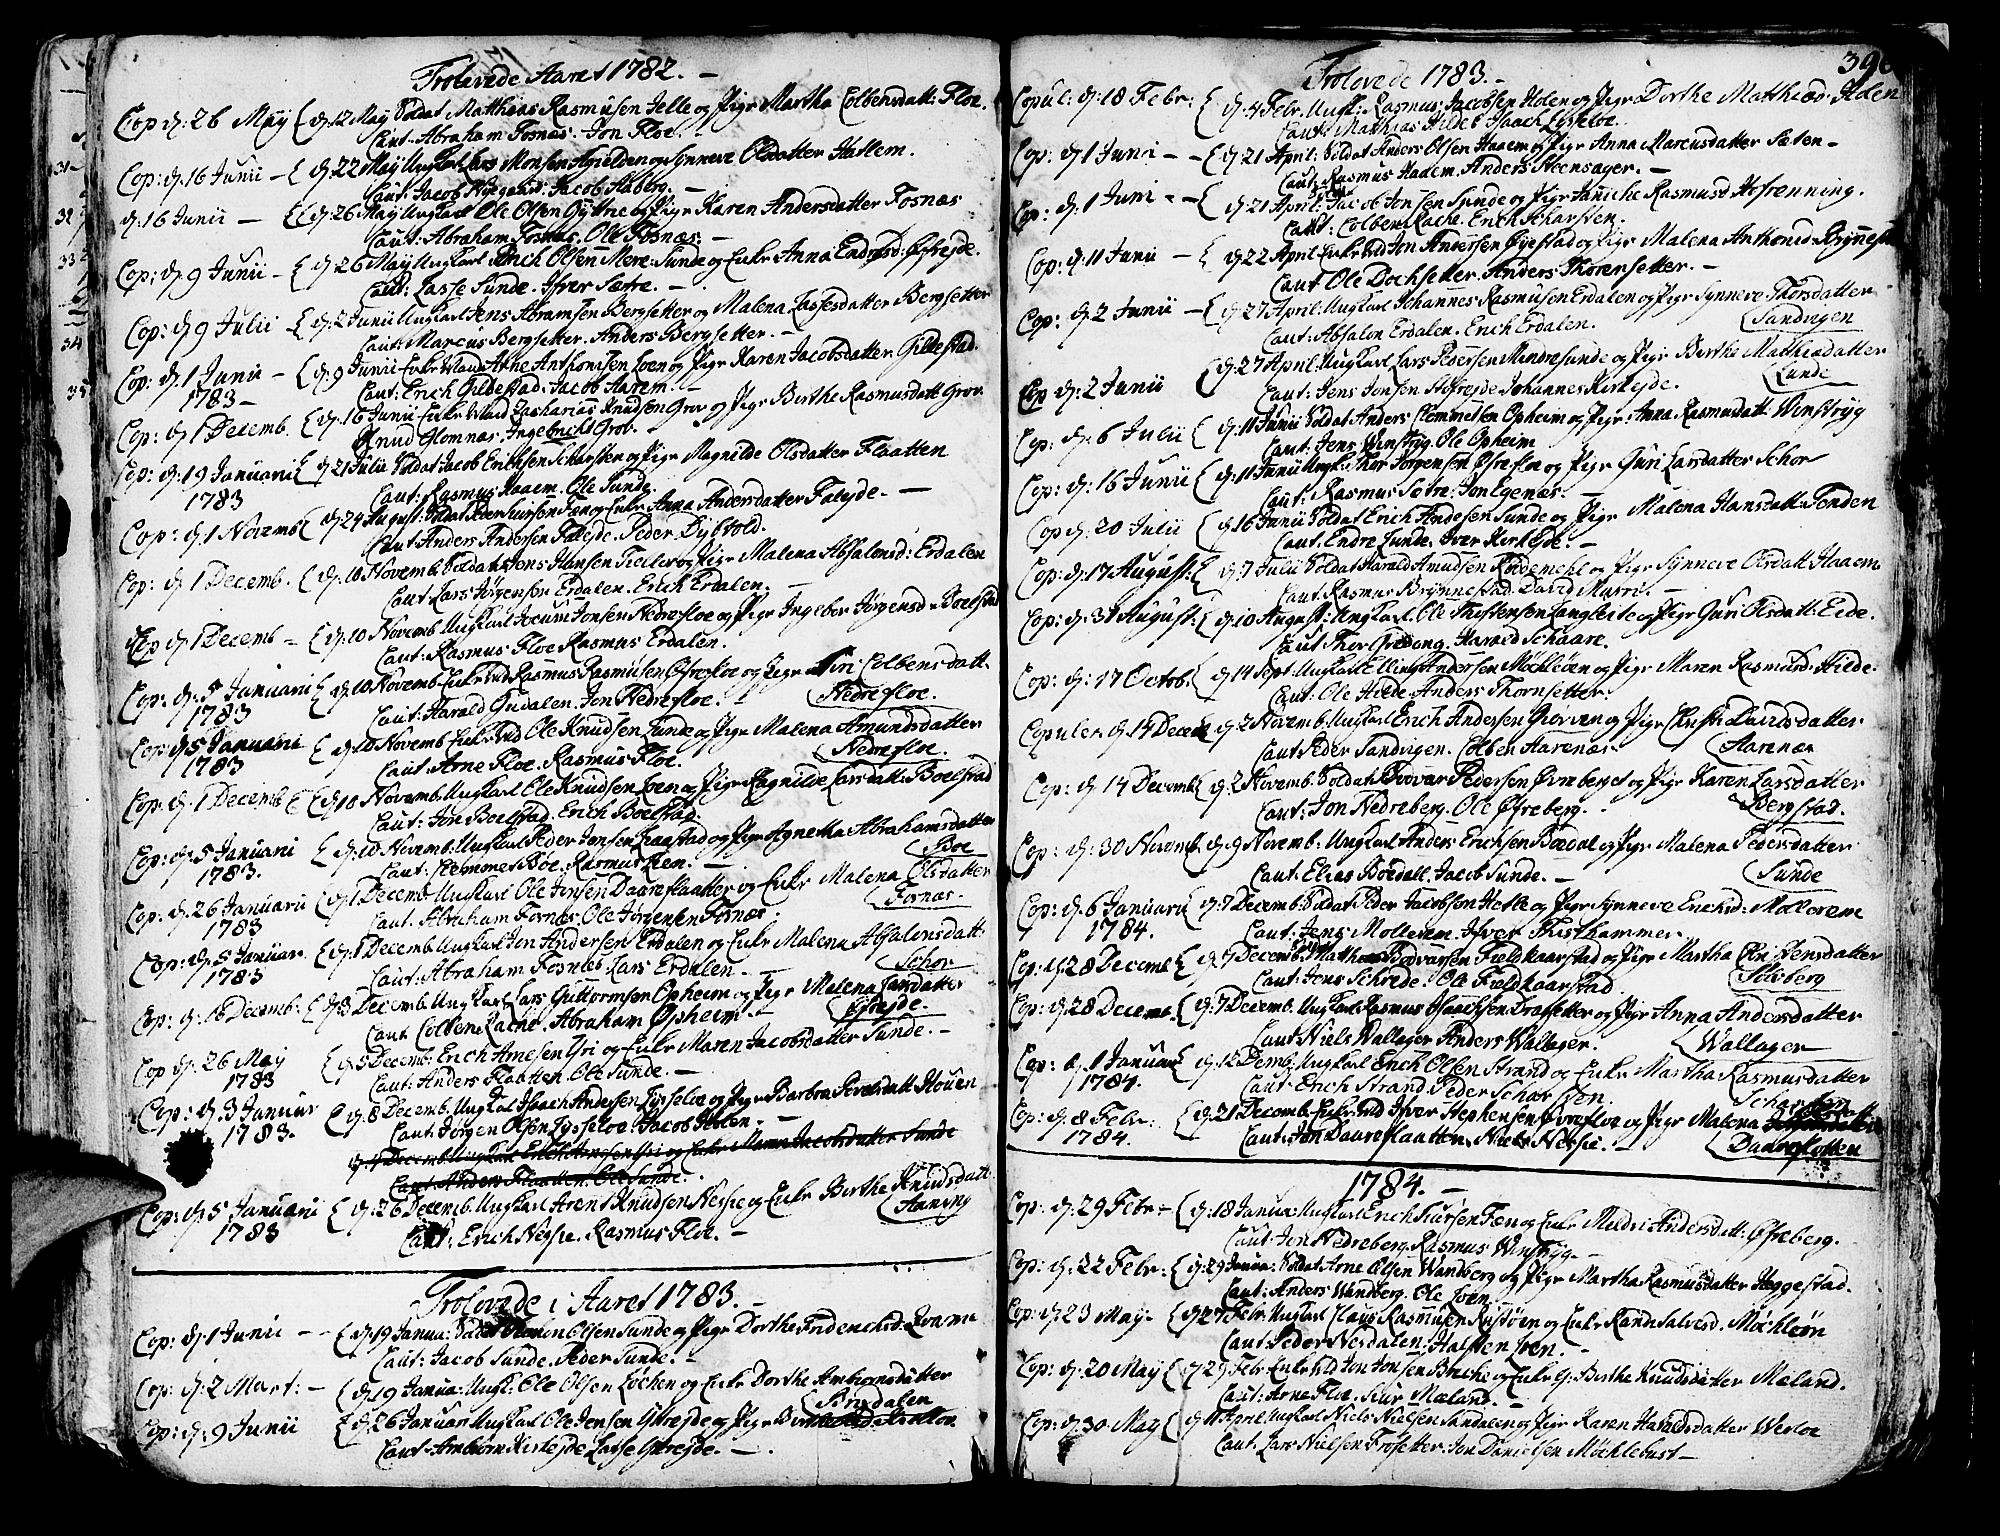 Trolovede Aaret 1782. -
Cop d: 26 May { d: 12 May Soldat Matthias Rasmusen Jelle og Pige Martha Colbensdatt: Floe.
Caut: Abraham Fosnæs. Jon Floe.
Cop: d: 16 Junii - { d: 22 May Ungkarl Lars Monsen og Pige Synneve Olsdatter Hallem.
Caut: Jacob Jacob Aaberg. -
d: 16 Junii - { d: 26 May Ungkarl Ole Olsen Gyttrie og Pige Karen Andersdatter Fosnæs
Caut: Abraham Fosnæs. Ole Fosnæs. -
Cop: d: 9 Junii - { d: 26 May Ungkarl Erich Olsen Mere-Sunde og Enke Anna Endresd: Øfrejde.
Caut: Lasse Sunde. Ifver Sætre. -
Cop: d: 9 Julii - { d: 2 Junii Ungkarl Jens Abramsen Bergsetter og Malena Lassesdatter Bergsetter
Caut: Marcus Bergsetter. Anders Bergsetter. -
Cop: d: 1 Junii - { d: 9 Junii Enke Mand Arne Anthonisen Loen og Pige Karen Jacobsdatter Gildestad.
1783 - Caut: Erich Gildestad. Jacob Aarem. -
Cop: d: 1 Decemb. { d: 16 Junii Enke Mand Zacharias Knudsen Grov og Pige Berthe Rasmusdatt Grov.
Knud Glomnæs. Ingebricht Grov.
Cop: d: 19 Januarii { d: 21 Julii Soldat Jacob Erichsen Scharsten og Pige Magnilde Olsdatter Flaatten
1783 Caut: Rasmus Haaem. Ole Sunde.
Cop: d: 1 Novemb { d: 24 August: Soldat Peder Siursen og Enke Anna Andersdatter Falejde. -
Caut: Anders Andersen Falejde. Peder Dybvold.
Cop: d: 1 Decemb. { d: 10 Novemb. Soldat Jens Hansen Tieller og Pige Malena Absalonsd: Erdalen
Caut: Lars Jørgensen Erdalen. Erich Erdalen. -
Cop d: 1 Decemb - { d: 10 Novemb. Ungkarl Jocum Jonsen Nedrefloe og Pige Ingebor Jørgensd: Boelstad
Caut: Rasmus Floe Rasmus Erdalen.
Cop: d: 5 Januarii { d: 10 Novemb Enke Md Rasmus Rasmusen Øfrefloe og Pige Siri Colbensdatt:
1783 Caut: Harald Gudalen. Jon Nedrefloe. - Nedrefloe.
Cop: d: 5 Januarii { d: 10 Novemb Enke Md Ole Knudsen Sunde og Pige Malena Amundsdatter
1783 Caut: Arne Floe. Rasmus Floe. Nedrefloe.
Cop: d: 1 Decemb { d: 10 Novemb. Ungkarl Ole Knudsen Loen og Pige Ragnilde Larsdatt: Boelstad
Caut: Jon Boelstad. Erich Boelstad.
Cop: d: 5 Januarii { d: 10 Novemb: Ungkarl Peder Jensen og Pige Agnetha Abrahamsdatter
1783. Caut: Clemmet Boe. Rasmus Rem. - Boe
Cop: d: 26 Januarii { d: 1 Decemb Ungkarl Ole Jonsen Daureflaatter og Enke Malena Olsdatter
1783 Caut. Abraham Fosnæs Ole Jørgensen Fosnæs. Fosnæs.
Cop: d: 5 Januar. { d: 1 Decemb. Ungkarl Jon Andersen Erdalen og Enke Malena Absalonsdatt:
1783 Caut: Abraham Fosnæs Lars Erdalen. - Schor
Cop: d: 16 Decemb: { d: 3 Decemb. Ungkarl Lars Guttormsen Opheim og Pige Malena Larsdatter
Caut Colben Rache. Abraham Opheim. - Øfrejde. -
Cop d: 26 May { d: 5 Decemb: Erich Arnesen Yri og Enke Maren Jacobsdatter Sunde. -
1783 Caut: Anders Flaatten. Ole Sunde. -
Cop: d: 3 Januar { d: 8 Decemb. Ungkarl Isaach Andersen Lysseloe og Pige Barbra Siverdsdatt Houen
1783. Caut: Jørgen Olsen Lysseloe. Jacob Holen. -
d: Decemb. Ungkarl Erich Arnesen Yri og Enke Maren Jacobsdatter Sunde
Caut Anders Flaatten. Ole Sunde.
Cop: d: 5 Januarii { d: 26 Decemb. Ungkarl Arent Knudsen Nesje og Enke Berthe Knudsdatt:
1783 Caut: Erich Nesje. Rasmus Floe. - Aaning
Trolovede i Aaret 1783. -
Cop: d: 1 Junii - { d: 19 Janua: Soldat Olsen Sunde og Pige Dorthe Friderichsd: Ronnie
Caut: Jacob Sunde. Peder Sunde. -
Cop: d: 2 Mart: - { d: 19 Janua: Ungk: Ole Olsen Lochen og Enke Dorthe Ambiornsdatter
Brydalen
Cop: d: 9 Junii { d: 26 Januar Ungkarl Ole Jensen og Pige
Caut: Ambiorn Kirkejde Lasse -
Trolovede 1783. -
Copul: d: 18 Febr: { d: 4 Febr. Ungk: Rasmus Jacobsen Holen og Pige Dorthe Matthiæd: Holen
Caut: Mathias Hilde Isaach Lysseloe.
Cop: d: 1 Juni - - { d: 21 April. Soldat Anders Olsen Haaem og Pige Anna Marcusdatter Sæten -
Caut: Rasmus Haaem. Anders Steensager. -
Cop: d: 1 Juni - - { d: 21 April: Jacob Jonsen Sunde og Pige Janiche Rasmusd Hestrenning.
Caut: Colben Rache. Erich Scharsten.
Cop: d: 11 Junii - { d: 22 April Enke Md Jon Andersen Øyestad og Pige Malena Anthonid: Brynnestad
Caut Ole Dochsetter. Anders Thorensetter. -
Cop: d: 2 Junii - { d: 27 April. Ungkarl Johannes Rasmusen Erdalen og Pige Synneve Thorsdatter
Caut: Absalon Erdalen. Erich Erdalen. Sandvigen
Cop d: 2 Junii { d: 27 April. Ungkarl Lars Pedersen Mindresunde og Pige Berthe Matthiæsdatter
Caut: Jens Jonsen Johannes Kirkejde. Lunde
Cop: d: 6 Julii { d: 11 Junii Soldat Anders Clemmetsen Opheim og Pige: Anna Rasmusdatt: Winstryg
Caut: Jens Winstryg. Ole Opheim
Cop: d: 16 Junii { d: 11 Junii Ungk: Thor Jørgensen Øfrefloe og Pige Guri Larsdatter Schor
Caut: Rasmus Sætre. Jon Egenæs. -
Cop d: 20 Julii { d: 16 Junii Soldat Erich Andesen Sunde og Pige Malena Hansdatt: Tenden
Caut. Endre Sunde. Iver Kirkejde. -
Cop: d: 17 August: { d: 7 Julii Soldat Harald Amudsen og Pige Synneve Olsdatt Haaem
Caut: Rasmus Brynnestad. David Murri. -
Cop: d: 31 August: { d: 10 August: Ungkarl. Ole Thostensen Langsæte og Pige Guri Olsdatt: Eide.
Caut Thor Grodong. Harald Schaare.
Cop: d: 17 Octob: { d: 14 Sept. Ungkarl Elling Andersen Möchleøen og Pige Maren Rasmusd: Hilde.
Caut: Ole Hilde Anders Thornsetter.
Copuler d: 14 Decem { d: 2 Novemb. Ungkarl Erich Andersen Giørven og Pige Christi Davidsdatter
Caut: Peder Sandvigen. Colben Aarenæs. Aarenær
Cop: d: 14 Decemb { d: 2 Novemb. Soldat Bovar Pedersen Øvreberget og Pige Karen Larsdatter
Caut: Jon Nedreberg. Ole Øfreberg. Bergstad.
Cop: d: 30 Novemb. d: 9 Novemb: Ungkarl Anders Erichsen Bødal og Pige Malena Pedersdatter
Caut: Elias Boedall. Jacob Sunde. - Sunde
Cop: d: 6 Januarii { d: 7 Decemb: Soldat Peder Jacobsen Helle og Pige Synneve Erichsd: Mollerem
1784. Caut: Jens Mollerem. Ifver Thisthammer.
Cop: d: 28 Decemb { d: 7 Decemb: Bodvarsen Fieldkaarstad og Pige Martha Christensdatter
Caut: Jens Schrede. Ole Fieldkaarstad. Solvberg
Cop: d: 28 Decemb. { d: 7 Decemb. Ungkarl Rasmus Isaachsen Træsetter og Pige Anna Andersdatter
Caut Niels Wallager Anders Wallager. Wallager
Cop: d: 1 Januar { d: 12 Demb. Ungkarl Erich Olsen Strand og Enke Martha Rasmusdatter
1784. Caut: Erich Strand. Peder Scharsten. Scharsten
Cop: d: 8 Febr: { d: 21 Decemb. Enke Md Ifver Stephensen Øvrefloe og Pige Malena
1784. Caut: Jon Daureflaatten. Niels Nesje. - Daureflotten
1784. -
Cop: d: 29 Febr: - { d: 18 Janua: Ungkarl Erich Siursen Fæn og Enke Mildri Andersdatt: Øfreberg.
Caut: Jon Nedreberg. Rasmus Winstryg. -
Cop: d: 22 Febr: { d: 29 Janua: Soldat Arne Olsen Wandberg og Pige Martha Rasmusdatter Heggestad.
Caut: Anders Wandberg. Ole Loen.
Cop: d: 23 May - { d: 27 Febr: Ungkarl Claus Rasmusen Rustøen og Enke Randi Salvesd. Möchleön
Caut: Peder Nesdalen. Halsten Loen. -
Cop: d: 20 May { d: 29 Febr: Enke Md Jon Jonsen Breche og Enke G: Berthe Knudsdatter Mæland.
Caut: Arne Floe. Siur Mæland. -
Cop: d: 30 May { d: 11 April. Ungkarl Niels Nielsen Sandalen og Pige Karen Hansdatter Westoe
Caut. Lars Nielsen Frøsetter. Jon Danielsen Möchlebust -